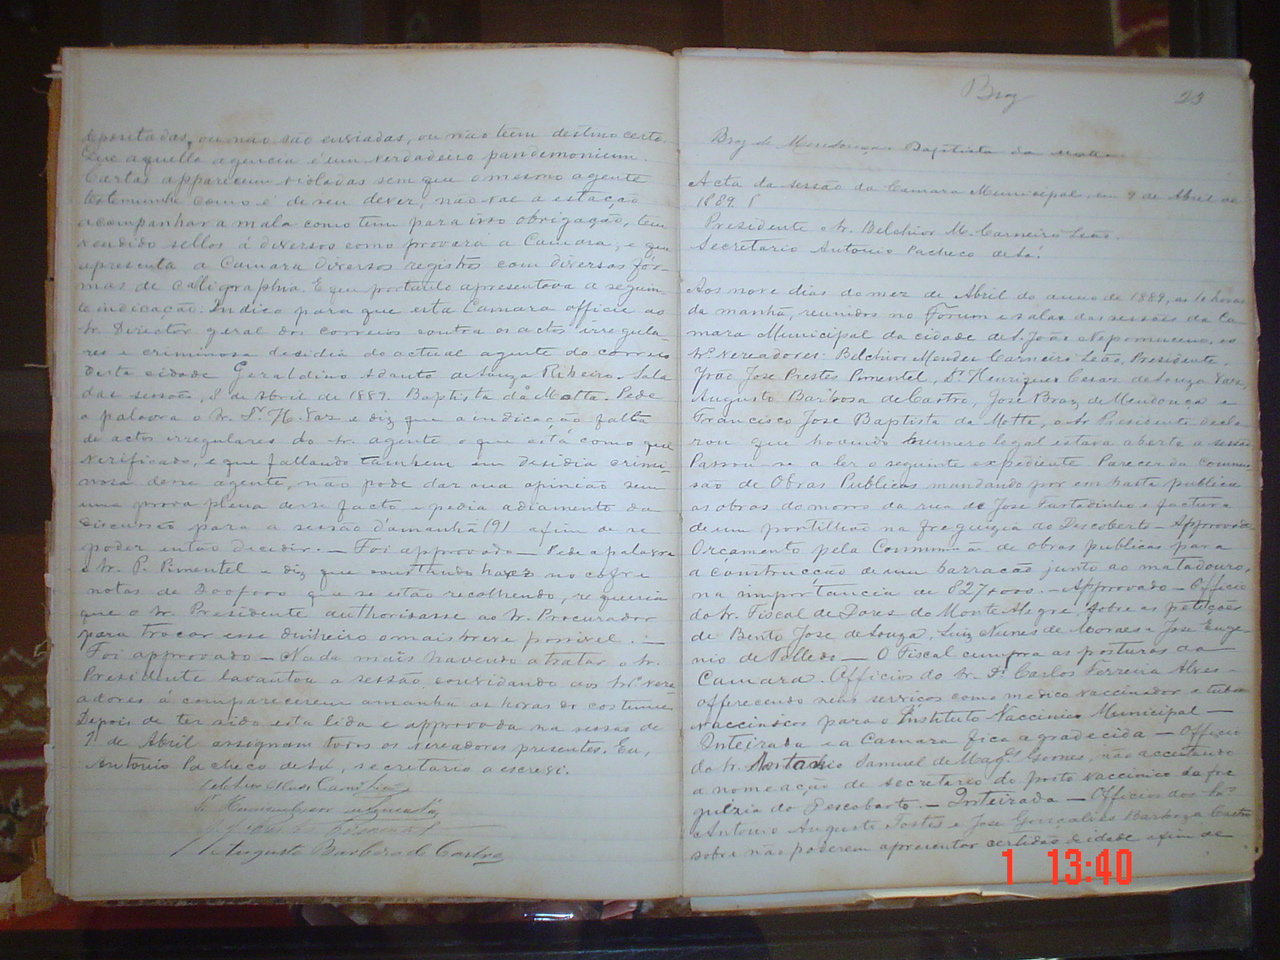 depositadas, ou não são enviadas, ou não teem destino certo.
Que aquella agencia é um verdadeiro pandemonium.
Cartas apparecem violadas sem que o mesmo agente
testemunhe como é de seu dever, não vae a estação
acompanhar a mala como tem para isso obrigação, tem
vendido sellos á diversos como provará a Camara, e que
apresenta á Camara diversos registros com diversas for-
mas de caligraphia. E que portanto apresentava a seguin-
te indicação: Indico para que esta Camara officie ao
Sr. Director geral dos correios contra os actos irregula-
res e criminosa desidia do actual agente do correio
desta cidade Geraldino Adauto de Souza Ribeiro. Sala
das sessões, 8 de Abril de 1889. Baptista da Motta. Pede
a palavra o Sr. Dr. H. Vaz e diz que a indicação falla
de actos irregulares do Sr. agente o que está como que
verificado, e que fallando tambem em desidia crimi-
nosa desse agente, não pode dar sua opinião sem
uma prova plena desse facto e pedia adiamento da
discussão para a sessão d'amanhã (9) afim de se
poder então decidir. — Foi approvado — Pede a palavra
o Sr. P. Pimentel e diz que constando haver no cofre
notas de que se estão recolhendo, requeria
que o Sr. Presidente authorisasse ao Sr. Procurador
para trocar esse dinheiro o mais breve possivel. —
Foi approvado — Nada mais havendo a tratar o Sr.
Presidente levantou a sessão, convidando aos Srs. vere-
adores á comparecerem amanhã as horas do costume.
Depois de ter sido esta lida e approvada na sessão de
9 de Abril assignam todos os vereadores presentes. Eu,
Antonio Pacheco de Sá, secretario a escrevi.
Augusto Barbosa de Castro
Braz 23
Braz de Mendonça Baptista da Motta
Acta da sessão da Camara Municipal, em 9 de Abril de
1889.
Presidente o Sr. Belchior M. Carneiro Leão.
Secretario Antonio Pacheco de Sá.
Aos nove dias do mez de Abril do anno de 1889, as 10 horas
da manhã, reunidos no Forum e sala das sessões da Ca-
mara Municipal da cidade de S. João Nepomuceno, os
Srs. Vereadores: Belchior Mendes Carneiro Leão, Presidente,
João José Prestes Pimentel, Dr. Henrique Cesar de Souza Vaz,
Augusto Barbosa de Castro, José Braz de Mendonça e
Francisco José Baptista da Motta, o Sr. Presidente decla-
rou que havendo numero legal estava aberta a sessão
Passou-se a ler o seguinte expediente Parecer da commis-
são de Obras Publicas mandando por em hasta publica
as obras do morro da rua de José Furtadinho e factura
de um pontilhão na freguezia do Descoberto — Approvado
Orçamento pela Commissão de obras publicas para
a construcção de um barracão junto ao matadouro,
na importancia de 827 — Approvado — Officio
do Sr. Fiscal de Dores do Monte Alegre, sobre as petições
de Bento José de Souza, Luiz Nunes de Moraes e José Euge-
nio de Tolledo — O Fiscal cumpra as posturas da
Camara. Officios do Sr. Dr. Carlos Ferreira Alves
offerecendo seus serviços como medico vaccinador e tubos
vaccinicos para o Instituto Vaccinico Municipal —
Inteirada e a Camara fica agradecida — Officio
do Sr. Antonio Samuel de Mags. Gomes, não acceitando
a nomeação de secretario do posto vaccinico da fre-
guezia do Descoberto. — Inteirada — Officios dos Srs.
Antonio Augusto Tostes e José Gonçalves Barboza Castro
sobre não poderem apresentar certidão de idade afim de
1 13:40